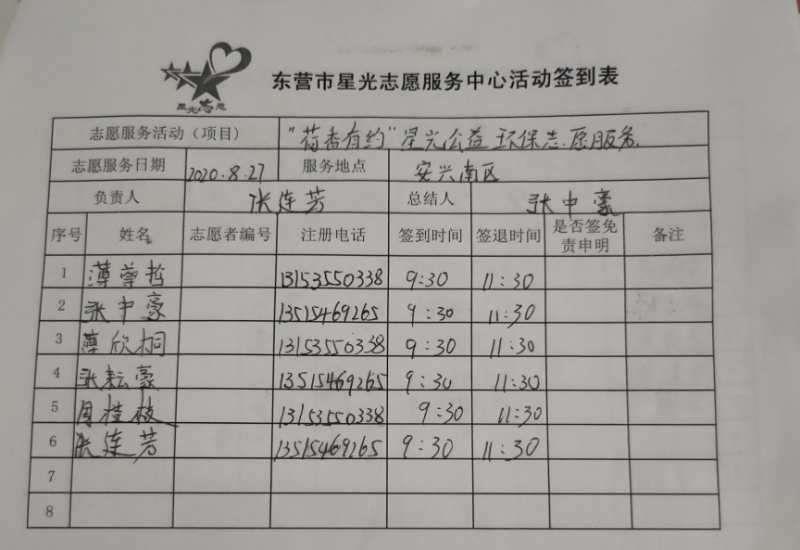 星光志愿
东营市星光志愿服务中心活动签到表
志愿服务活动（项目） "荷香有约"星光公益环保志愿服务
志愿服务日期 2020.8.27 服务地点 安兴南区
负责人 张连芳 总结人 张中豪
序号 姓名 志愿者编号 注册电话 签到时间 签退时间 是否签免责申明 备注
1 薄莹哲 13153550338 9:30 11:30
2 张中豪 13515469265 9:30 11:30
3 薄欣桐 13153550338 9:30 11:30
4 张耘豪 13515469265 9:30 11:30
5 周桂枝 13153550338 9:30 11:30
6 张连芳 13515469265 9:30 11:30
7
8